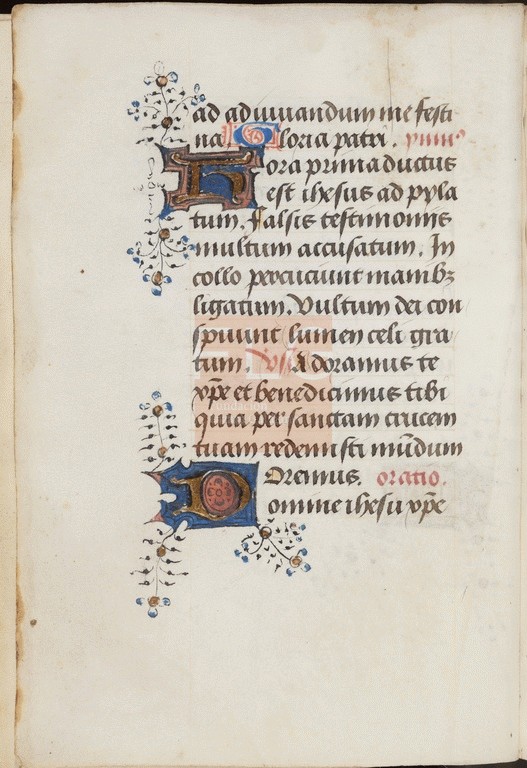 ad adiuuandum me festi
na. Gloria patri. ymnꝰ
Hora prima ductus
est ihesus ad pyla
tum. Falsis testimonijs
multum accusatum. In
collo percuciunt manibꝫ
ligatum. Vultum dei con
spuunt lumen celi gra
tum. Vs̃. Adoramus te
xp̃e et benedicimus tibi
quia per sanctam crucem
tuam redemisti mũdum
Oremus. oratio.
Domine ihesu xp̃e